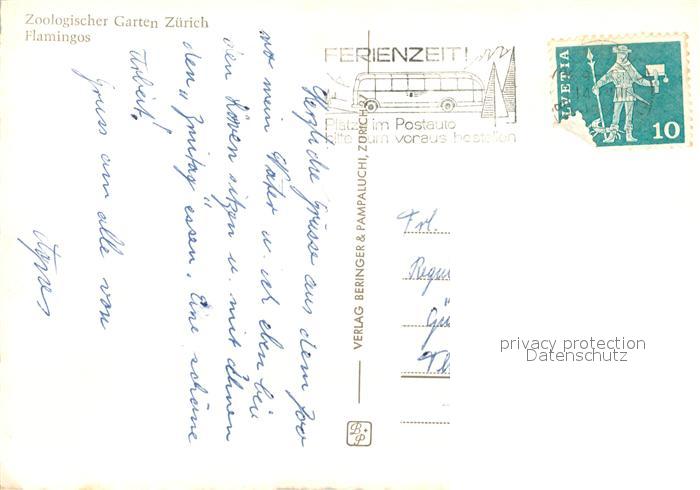 Zoologischer Garten Zürich
Flamingos
FERIENZEIT!
Platz im Postauto
bitte zum voraus bestellen
HELVETIA
10
Herzliche Grüsse aus dem Zoo
wo mein Vater u. ich eben bei
den Löwen sitzen u. mit Ihnen
den "Zmittag" essen. Eine schöne
Arbeit!
Gruss an alle von
VERLAG BERINGER & PAMPALUCHI, ZÜRICH 2
B+P
Frl.
privacy protection
Datenschutz